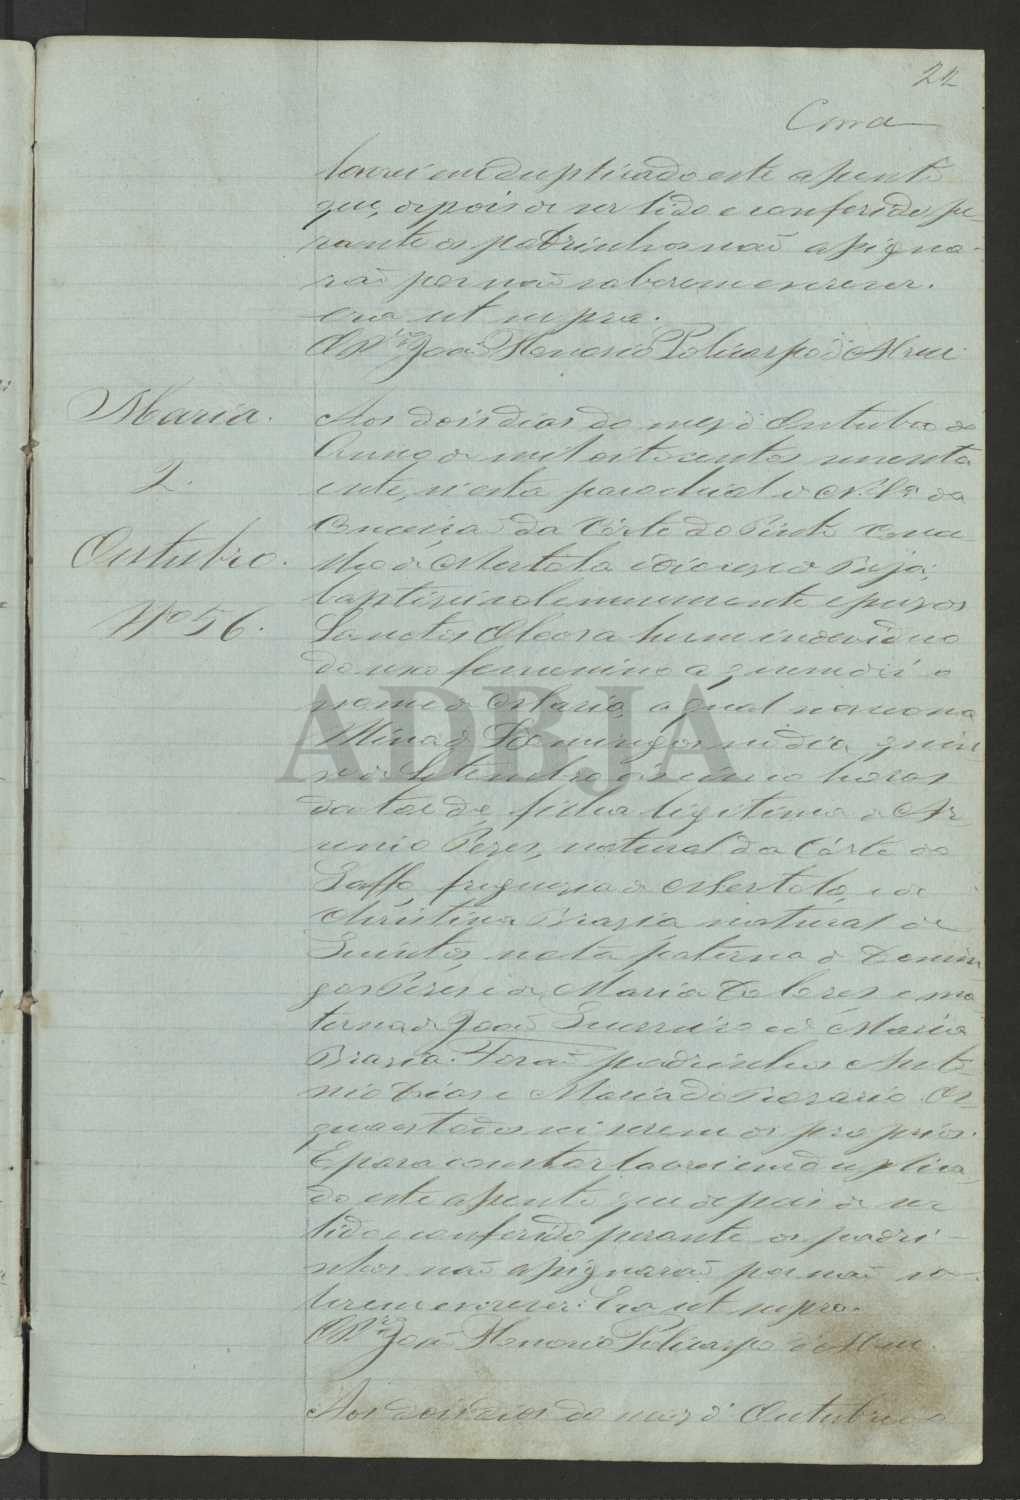 22
lavrei em duplicado este assento
que, depois de ser lido e conferido pe-
rante os padrinhos não assigna-
rão por não saberem escrever.
Era ut supra.
O P.e João Honorio Policarpo d'
Maria.
2.
Outubro.
Nº 56.
Aos dois dias do mez d' Outubro do
Anno de mil oito centos
n'esta parochial de N. S.ra da
Conceição da Côrte do Pinto conce-
lho de Mertola e diocese de Beja,
baptisei solemnemente e puz os
Sanctos Oleos a hum individuo
do sexo femenino a quem dei o
nome de Maria, a qual nasceo na
Mina de S. Domingos no dia quin-
se de Setembro ás cinco horas
da tarde, filha legitima de
Peres, natural da Côrte do
Gaffo, freguesia de Mertola, e de
Christina Brazia natural de
Quintos, neta paterna de Domin-
gos Peres e de Maria Dolores e ma-
terna de João Guerreiro e de Maria
Brazia. Forão padrinhos Anto-
nio Dias e Maria do Rosario. Os
quaes todos sei serem os proprios.
E para constar lavrei em duplica-
do este assento que depois de ser
lido e conferido perante os padri-
nhos não assignarão por não sa-
berem escrever. Era ut supra.
O P.e João Honorio Policarpo d'
Aos dois dias do mez d' Outubro do
ADBJA